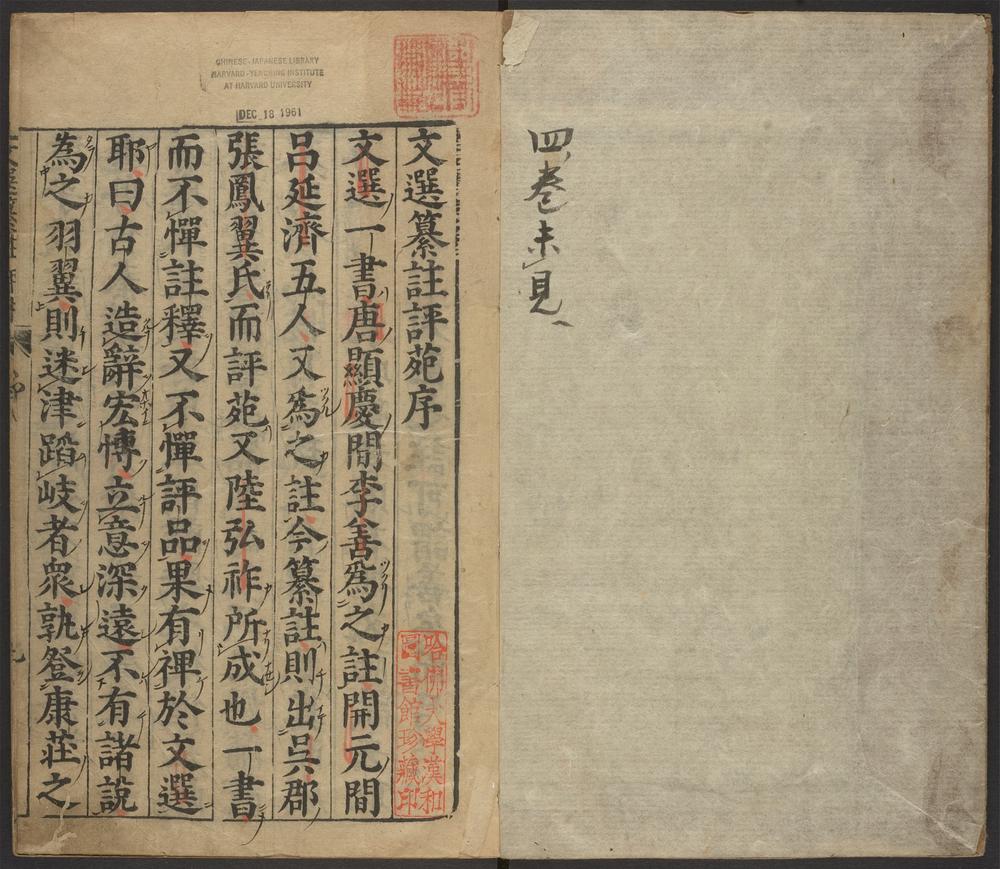 四巻未見
CHINESE-JAPANESE LIBRARY
HARVARD-YENCHING INSTITUTE
AT HARVARD UNIVERSITY
DEC 18 1961
文選纂註評苑序
哈佛大學漢和
圖書館珍藏印
文選一書唐顯慶間李善爲之註開元間
呂延濟五人又爲之註今纂註則出吳郡
張鳳翼氏而評苑又陸弘祚所成也一書
而不憚註釋又不憚評品果有裨於文選
耶曰古人造辭宏博立意深遠不有諸說
為之羽翼則迷津蹈岐者衆孰登康莊之